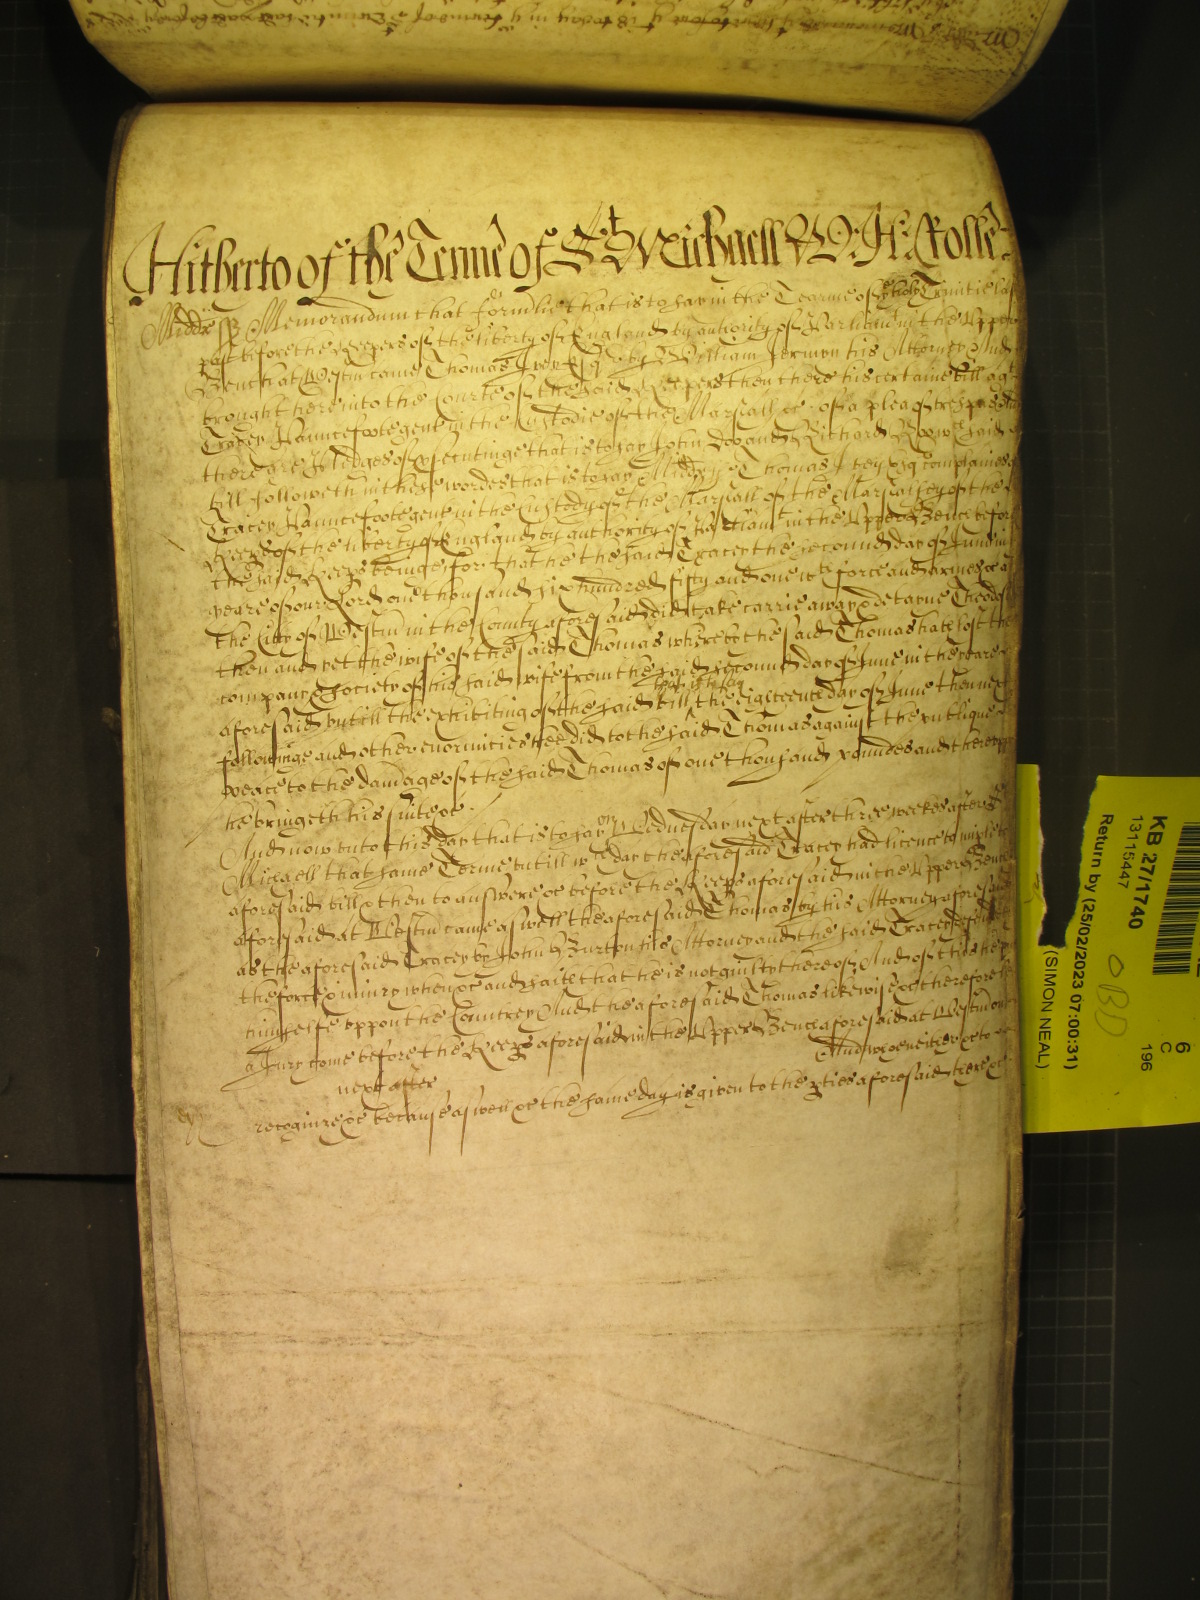 Hitherto of the Terme of St Michaell W: H: Rolle
Middx ss Memorandum that formlie that is to say in the Tearme of the holy Trinitie last
past before the Keepers of the liberty of England by authority of Parliamt in the Upper
Bench at Westm came Thomas Ivey Esqr by William Jermyn his Attorney And
brought here into the Courte of the said Keepers then there his certaine bill agt
Tracey Pauncefoote gent in the Custodie of the Marshall &c of a plea of trespas And
there are Pledges of prsecutinge that is to say John Doo and Richard Roo wch said
bill followeth in these wordes that is to say Middx ss Thomas Ivey Esq complaines of
Tracey Pauncefoote gent in the Custody of the Marshall of the Marshalsey of the
Keeps of the liberty of England by authority of Parliamt in the Upper Bench before
the said Keeps beinge for that he the said Tracey the second day of June in the
yeare of our Lord one thousand six hundred fifty and one wth force and armes &c at
the City of Westm in the County aforesaid did take carrie away & detayne Theodosia
then and yet the wife of the said Thomas whereby the said Thomas hath lost the
company & society of his said wife from the said second day of June in the yeare
aforesaid untill the exhibiting of the said bill that is to say the eighteenth day of June then next
followinge and other enormities hee did to the said Thomas against the publique
peace to the damage of the said Thomas of one thousand poundes and thereuppon
he bringeth his suite &c
And now unto this day that is to say on Wednesday next after three weekes after St
Michaell that same Terme untill wch day the aforesaid Tracey had licence to imparle to the
aforesaid bill & then to answere &c before the Keeps aforesaid in the Upper Bench
aforesaid at Westm came aswell the aforesaid Thomas by his Attorney aforesaid
as the aforesaid Tracey by John Burton his Attorney and the said Tracey defendeth
the force & iniury when &c and saith that he is not guilty thereof And of this he putts
himselfe uppon the Countrey And the aforesaid Thomas likewise &c therefore let
a Jury come before the Keeps aforesaid in the Upper Bench aforesaid at Westm on
next after And who neither &c to
recognize &c because aswell &c the same day is given to the pties aforesaid there &c
KB 27/1740
13115447
Return by (25/02/2023 07:00:31)
(SIMON NEAL)
6
C
196
OBD